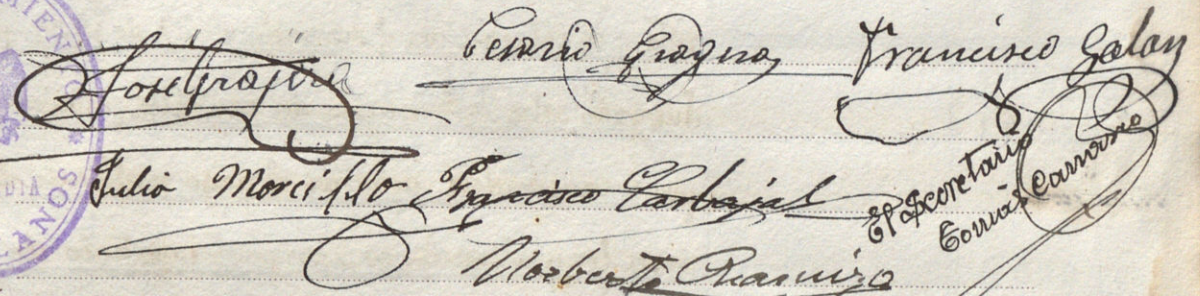 José Gragera
Cesario Gragera
Francisco Galan
Julio Morcillo
Francisco Carbajal
El Secretario
Tomás Carrasco
Norberto Ramiro